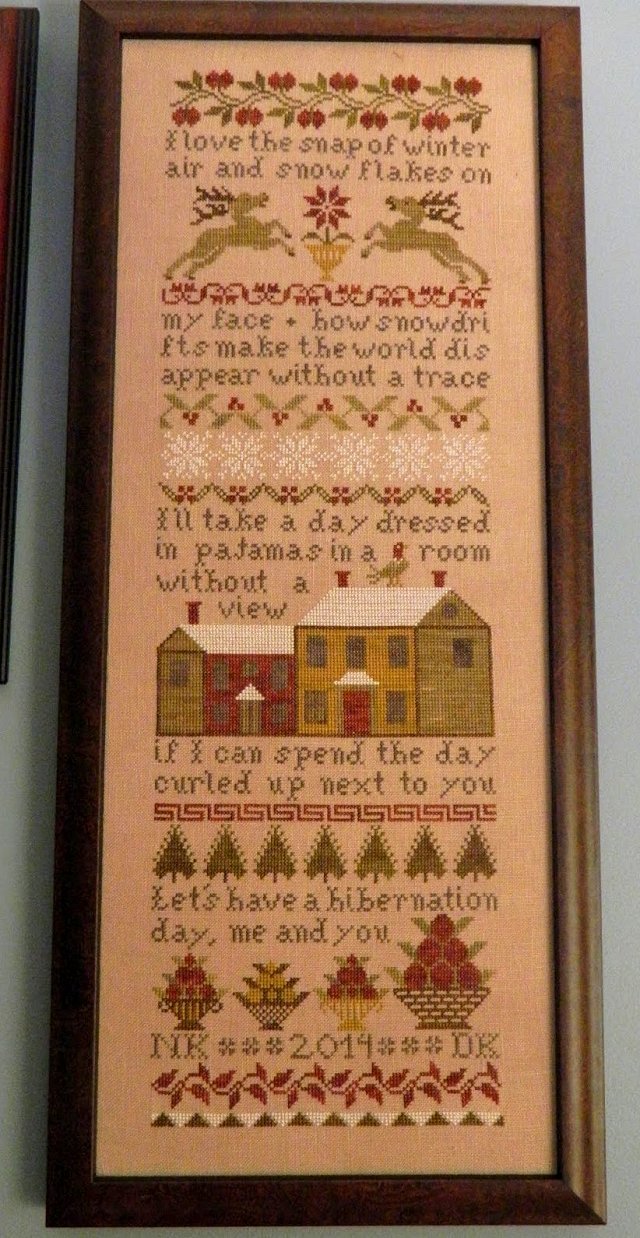 I love the snap of winter
air and snow flakes on
my face + how snowdri
fts make the world dis
appear without a trace
I'll take a day dressed
in pajamas in a room
without a
view
if I can spend the day
curled up next to you
Let's have a hibernation
day, me and you
NK ***2014*** DK